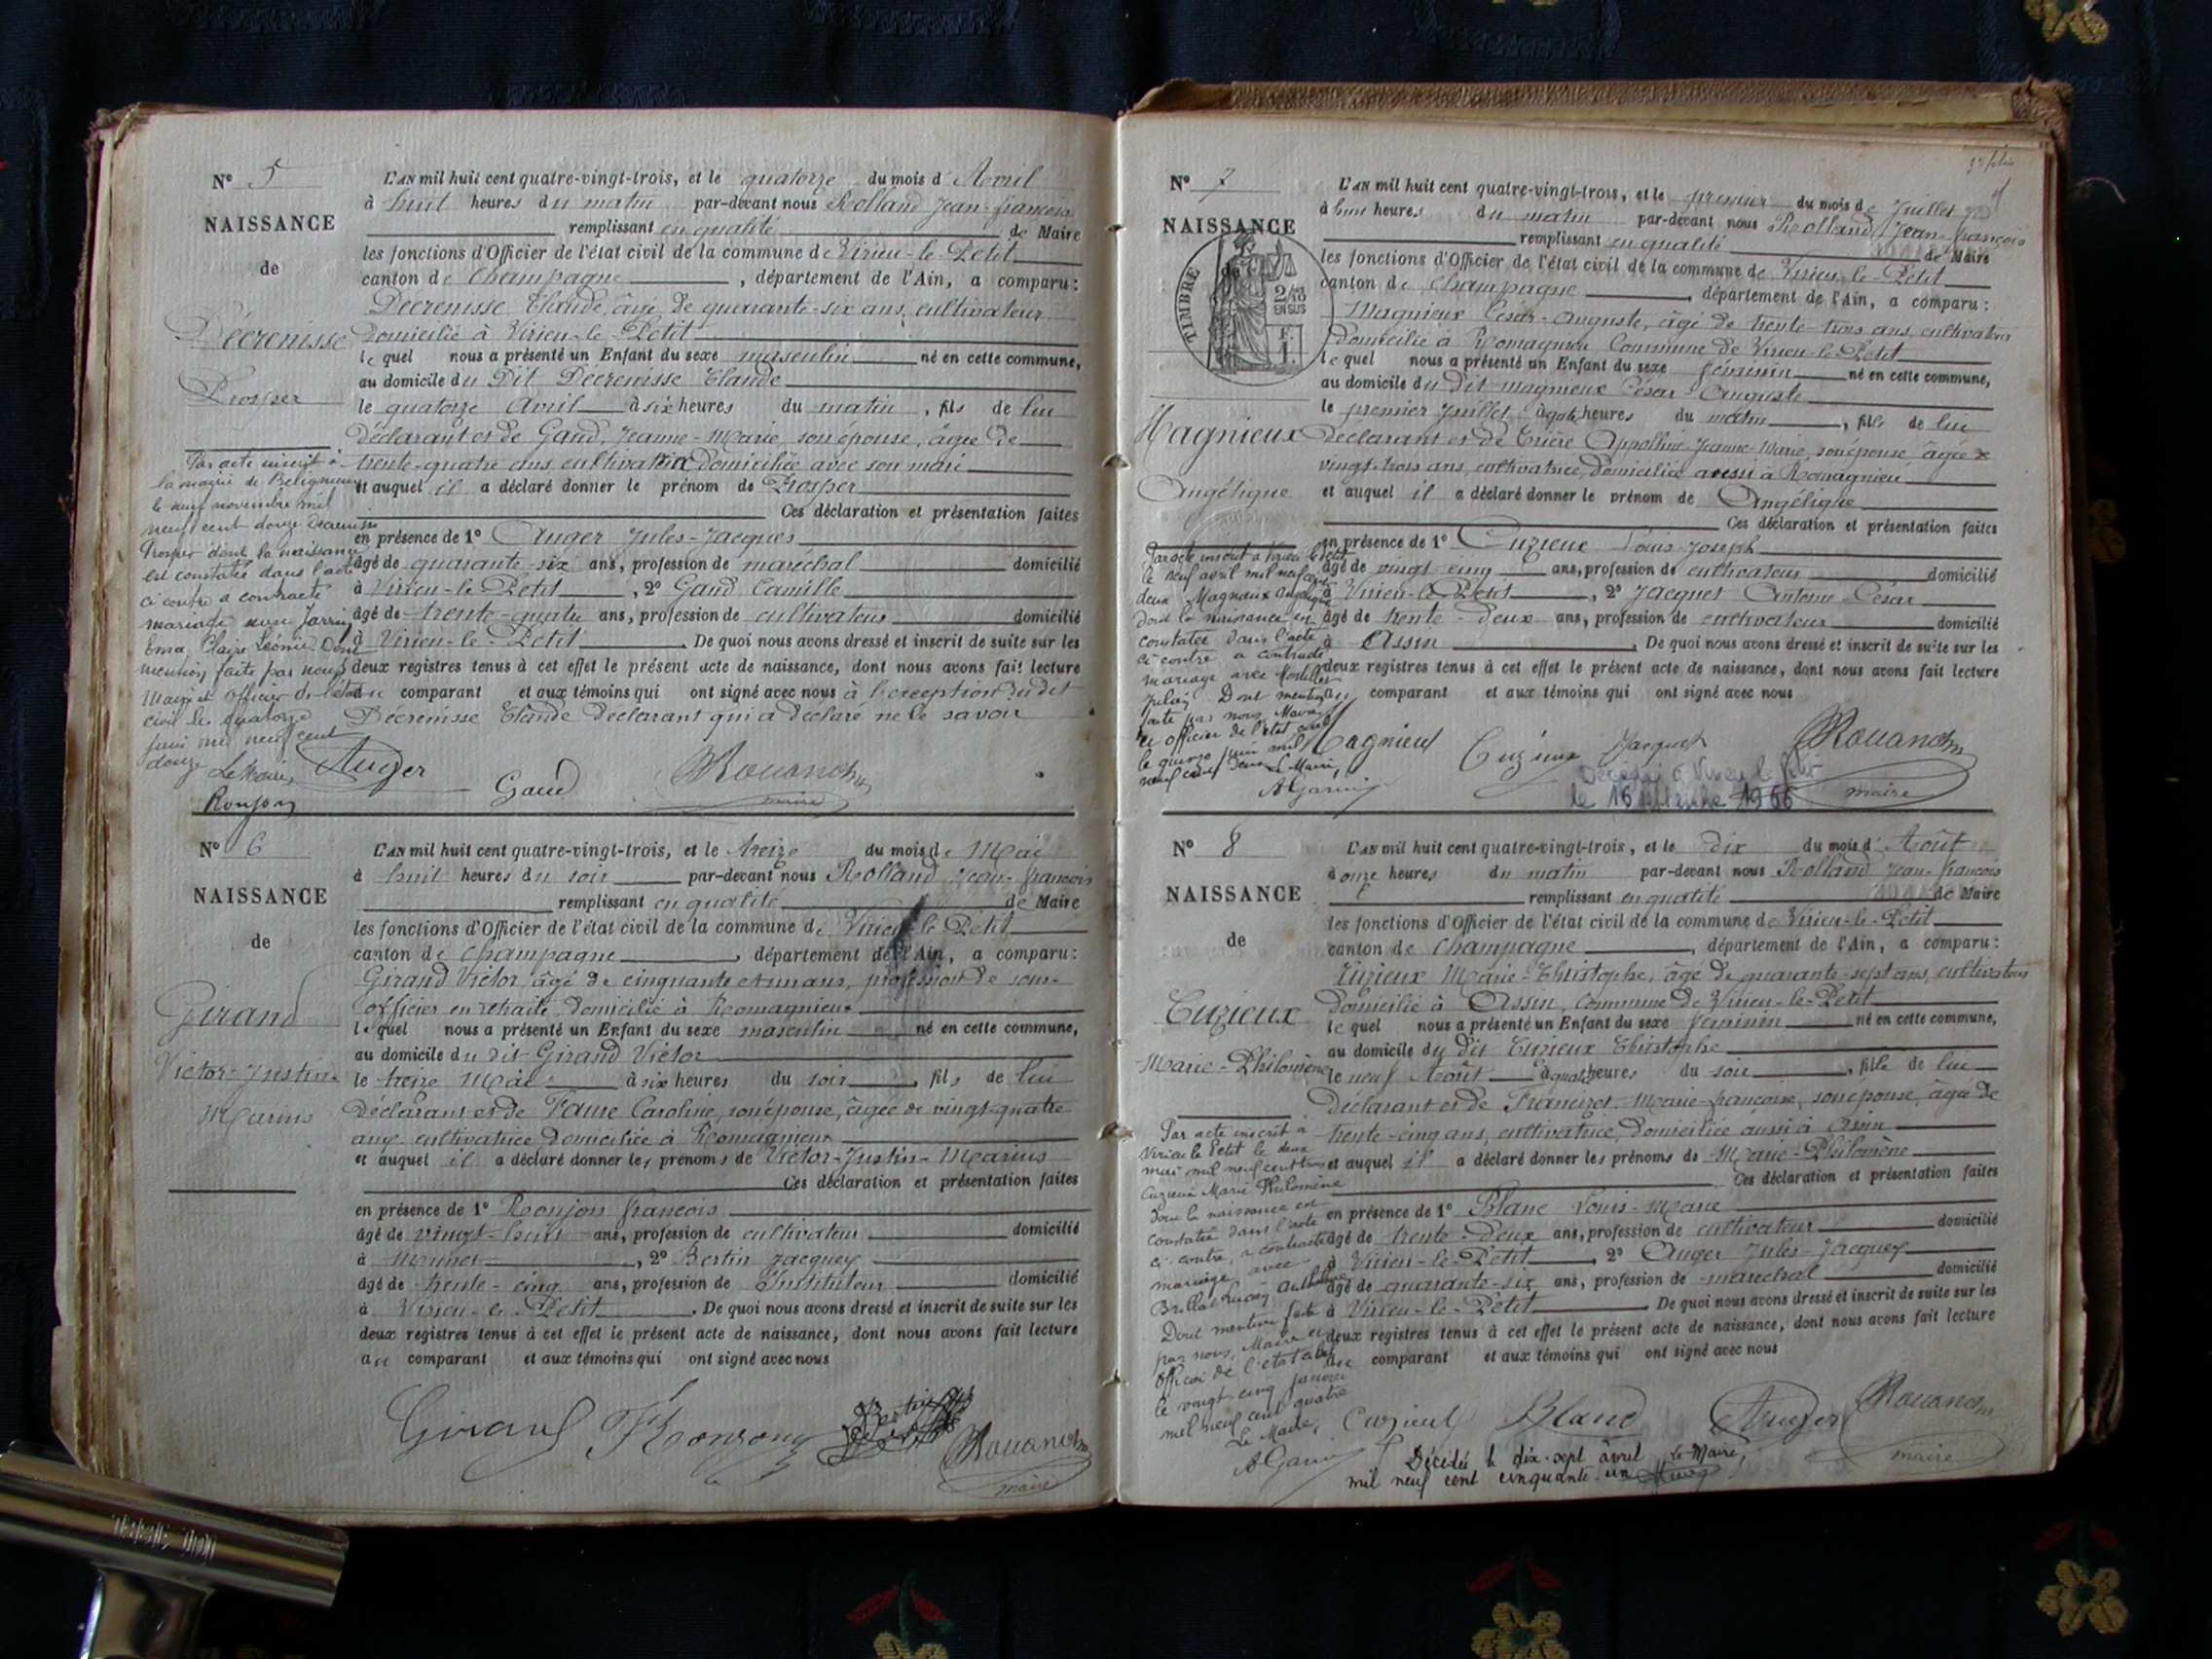 N° 5
NAISSANCE
de
Décrenisse
Prosper
L'AN mil huit cent quatre-vingt-trois, et le quatorze du mois d'Avril
à huit heures du matin par-devant nous Rolland Jean-françois
remplissant en qualité de Maire
les fonctions d'Officier de l'état civil de la commune de Virieu-le-Petit
canton de Champagne, département de l'Ain, a comparu:
Décrenisse Claude, âgé de quarante-six ans, cultivateur
domicilié à Virieu-le-Petit
lequel nous a présenté un Enfant du sexe masculin né en cette commune,
au domicile du Dit Décrenisse Claude
le quatorze Avril à six heures du matin, fils de lui
déclarant et de Gand, Jeanne-Marie, son épouse, âgée de
trente-quatre ans, cultivatrice domiciliée avec son mari
et auquel il a déclaré donner le prénom de Prosper
Ces déclaration et présentation faites
en présence de 1° Auger Jules-Jacques
âgé de quarante-six ans, profession de maréchal domicilié
à Virieu-le-Petit, 2° Gand Camille
âgé de trente-quatre ans, profession de cultivateur domicilié
à Virieu-le-Petit. De quoi nous avons dressé et inscrit de suite sur les
deux registres tenus à cet effet le présent acte de naissance, dont nous avons fait lecture
au comparant et aux témoins qui ont signé avec nous à l'exception du dit
Décrenisse Claude déclarant qui a déclaré ne le savoir
Par acte inscrit à
la mairie de
le neuf novembre mil
neuf cent douze Décrenisse
Prosper dont la naissance
est constatée dans l'acte
ci contre a contracté
mariage avec Jarrin
Ema, Claire Léonie. Dont
mention faite par nous
Maire et Officier de l'état
civil le quatorze
mil neuf cent
douze Le Maire,
Roujon
Auger Gand Rouand
maire
N° 6
NAISSANCE
de
Girand
Victor-Justin-
Marius
L'AN mil huit cent quatre-vingt-trois, et le treize du mois de Mai
à huit heures du soir par-devant nous Rolland Jean-françois
remplissant en qualité de Maire
les fonctions d'Officier de l'état civil de la commune de Virieu-le-Petit
canton de Champagne, département de l'Ain, a comparu:
Girand Victor, âgé de cinquante et un ans, profession de sous-
officier en retraite, domicilié à Romagnieux
lequel nous a présenté un Enfant du sexe masculin né en cette commune,
au domicile du dit Girand Victor
le treize Mai à six heures du soir, fils de lui
Déclarant et de Faure Caroline, son épouse, âgée de vingt-quatre
ans, cultivatrice domiciliée à Romagnieux
et auquel il a déclaré donner les prénoms de Victor-Justin-Marius
Ces déclaration et présentation faites
en présence de 1° Roujon françois
âgé de vingt-huit ans, profession de cultivateur domicilié
à, 2° Bertin Jacques
âgé de trente-cinq ans, profession de Instituteur domicilié
à Virieu-le-Petit. De quoi nous avons dressé et inscrit de suite sur les
deux registres tenus à cet effet le présent acte de naissance, dont nous avons fait lecture
au comparant et aux témoins qui ont signé avec nous
Girand F Roujon Bertin Rouand
maire
N° 7
NAISSANCE
de
TIMBRE
2/10
EN SUS
Magnieux
Angélique
L'AN mil huit cent quatre-vingt-trois, et le premier du mois de Juillet
à huit heures du matin par-devant nous Rolland Jean-françois
remplissant en qualité de Maire
les fonctions d'Officier de l'état civil de la commune de Virieu-le-Petit
canton de Champagne, département de l'Ain, a comparu:
Magnieux César-Auguste, âgé de trente-trois ans, cultivateur
domicilié à Romagnieu Commune de Virieu-le-Petit
lequel nous a présenté un Enfant du sexe féminin né en cette commune,
au domicile du dit Magnieux César-Auguste
le premier Juillet, à quatre heures du matin, fille de lui
Déclarant et de Appolline-Jeanne-Marie, son épouse, âgée de
vingt-trois ans, cultivatrice, domiciliée aussi à Romagnieu
et auquel il a déclaré donner le prénom de Angélique
Ces déclaration et présentation faites
en présence de 1° Cuzieux Louis-Joseph
âgé de vingt-cinq ans, profession de cultivateur domicilié
à Virieu-le-Petit, 2° Jacquet Antoine-César
âgé de trente-deux ans, profession de cultivateur domicilié
à Assin. De quoi nous avons dressé et inscrit de suite sur les
deux registres tenus à cet effet le présent acte de naissance, dont nous avons fait lecture
au comparant et aux témoins qui ont signé avec nous
Par acte inscrit à Virieu le Petit
le neuf avril mil neuf cent
deux Magnieux Angélique
dont la naissance est
constatée dans l'acte
ci contre a contracté
mariage avec
Dont mention
faite par nous, Maire
et officier de l'état civil
le quinze juin mil
neuf cent deux Le Maire,
A Garin
Magnieux Cuzieux Jacquet Rouand
maire
Décédée à Virieu le Petit
le 16 1966
N° 8
NAISSANCE
de
Cuzieux
Marie-Philomène
L'AN mil huit cent quatre-vingt-trois, et le dix du mois d'Août
à onze heures du matin par-devant nous Rolland Jean-françois
remplissant en qualité de Maire
les fonctions d'Officier de l'état civil de la commune de Virieu-le-Petit
canton de Champagne, département de l'Ain, a comparu:
Cuzieux Marie-Christophe, âgé de quarante-sept ans, cultivateur
domicilié à Assin, Commune de Virieu-le-Petit
lequel nous a présenté un Enfant du sexe féminin né en cette commune,
au domicile du dit Cuzieux Christophe
le neuf Août à quatre heures du soir, fille de lui
Déclarant et de Marie-françoise, son épouse, âgée de
trente-cinq ans, cultivatrice, domiciliée aussi à Assin
et auquel il a déclaré donner les prénoms de Marie-Philomène
Ces déclaration et présentation faites
en présence de 1° Blanc Louis-Marie
âgé de trente-deux ans, profession de cultivateur domicilié
à Virieu-le-Petit, 2° Auger Jules-Jacques
âgé de quarante-six ans, profession de maréchal domicilié
à Virieu-le-Petit. De quoi nous avons dressé et inscrit de suite sur les
deux registres tenus à cet effet le présent acte de naissance, dont nous avons fait lecture
au comparant et aux témoins qui ont signé avec nous
Par acte inscrit à
Virieu le Petit le deux
mai mil neuf cent trois
Cuzieux Marie Philomène
dont la naissance est
constatée dans l'acte
ci contre, a contracté
mariage avec
Brillat
Dont mention faite
par nous, Maire et
officier de l'état civil
le vingt cinq janvier
mil neuf cent quatre
Le Maire,
A Garin
Cuzieux Blanc Auger Rouand
maire
Décédée le dix-sept avril Le Maire,
mil neuf cent cinquante-un